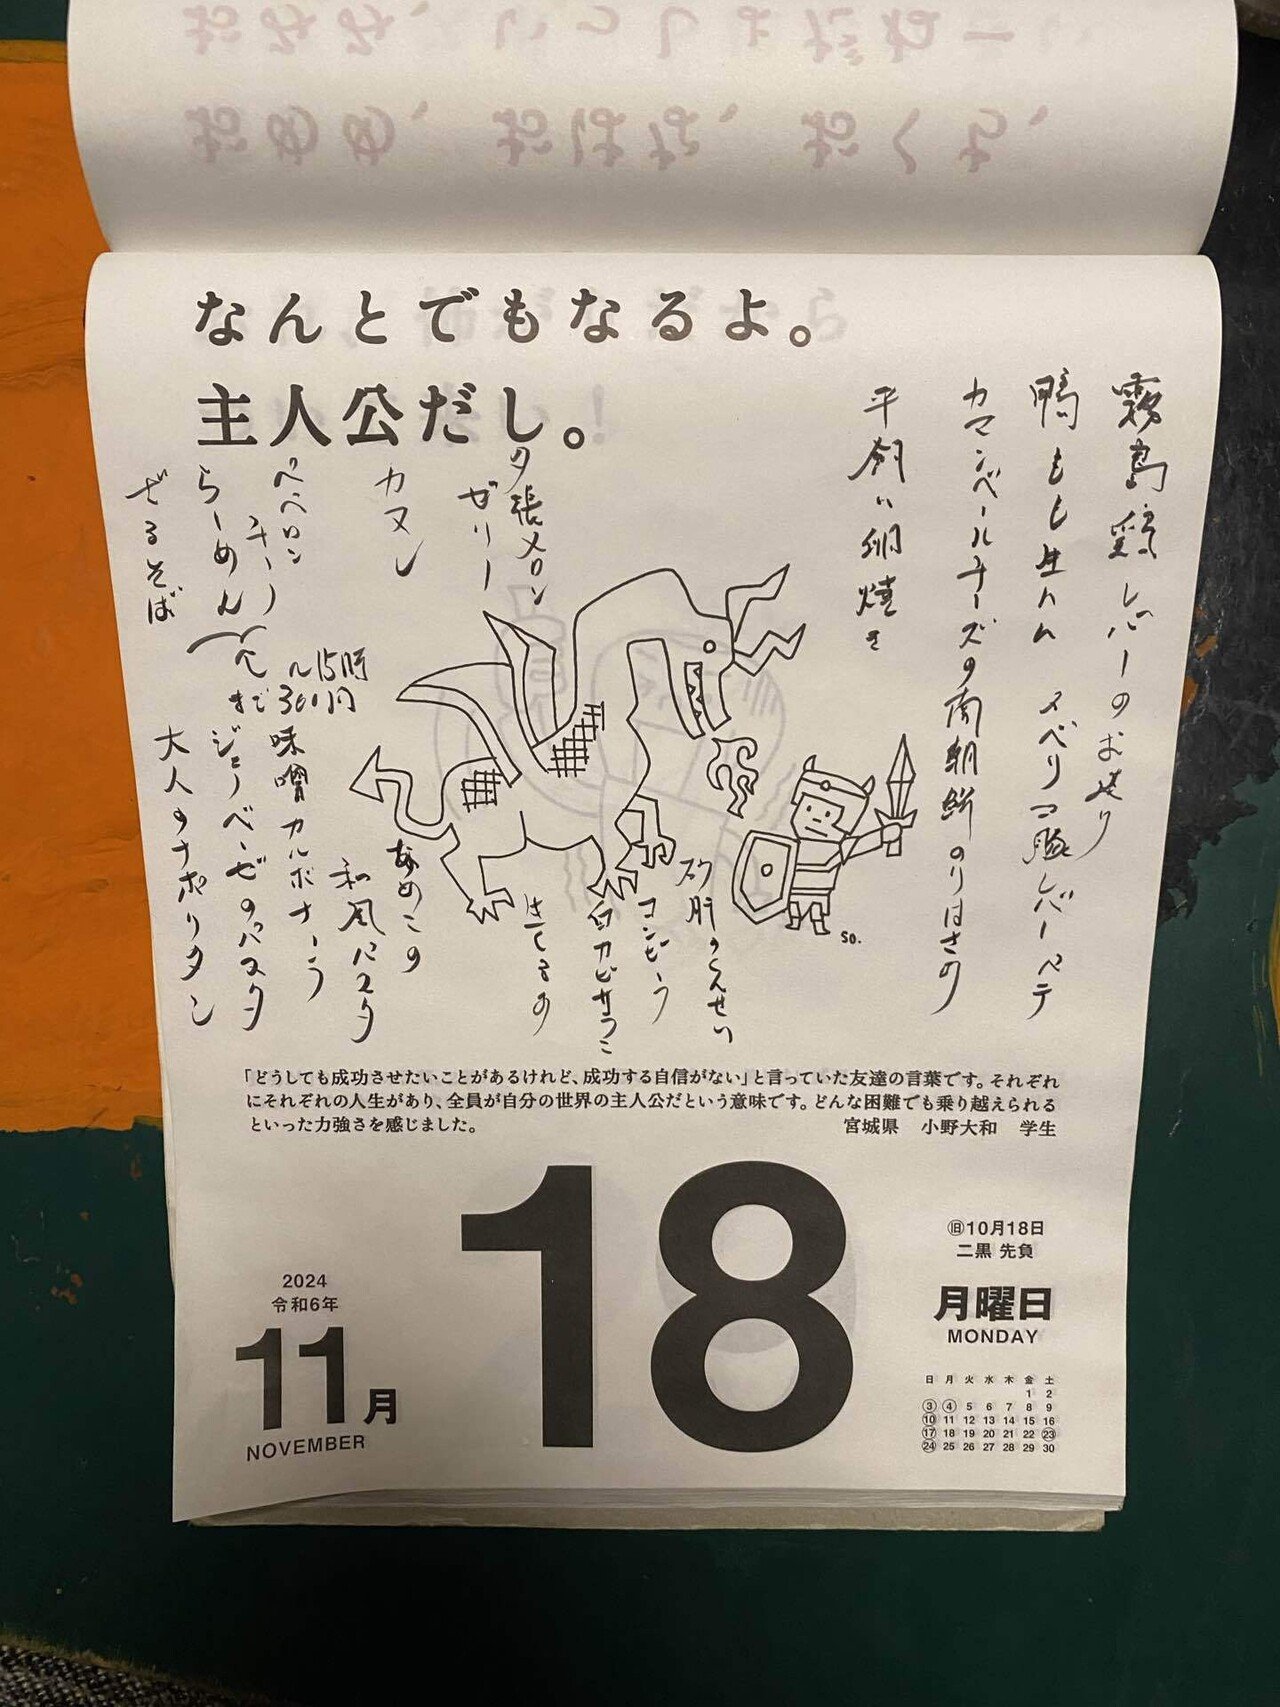 なんとでもなるよ。
主人公だし。
霧島鶏レバーのお造り
鴨もも生ハム
イベリコ豚レバーパテ
カマンベールチーズの南部餅のりはさみ
平飼い卵焼き
夕張メロン
ゼリー
カヌレ
ペペロン
チーノ
らーめん
ざるそば
砂肝のくんせい
コンビーフ
白カビサラミ
なめこの
和風パスタ
味噌カルボナーラ
ジェノベーゼのパスタ
大人のナポリタン
so.
「どうしても成功させたいことがあるけれど、成功する自信がない」と言っていた友達の言葉です。それぞれ
にそれぞれの人生があり、全員が自分の世界の主人公だという意味です。どんな困難でも乗り越えられる
といった力強さを感じました。 宮城県 小野大和 学生
2024
令和6年
11月
NOVEMBER
18
㊐10月18日
二黒 先負
月曜日
MONDAY
日 月 火 水 木 金 土
1 2
3 4 5 6 7 8 9
10 11 12 13 14 15 16
17 18 19 20 21 22 23
24 25 26 27 28 29 30